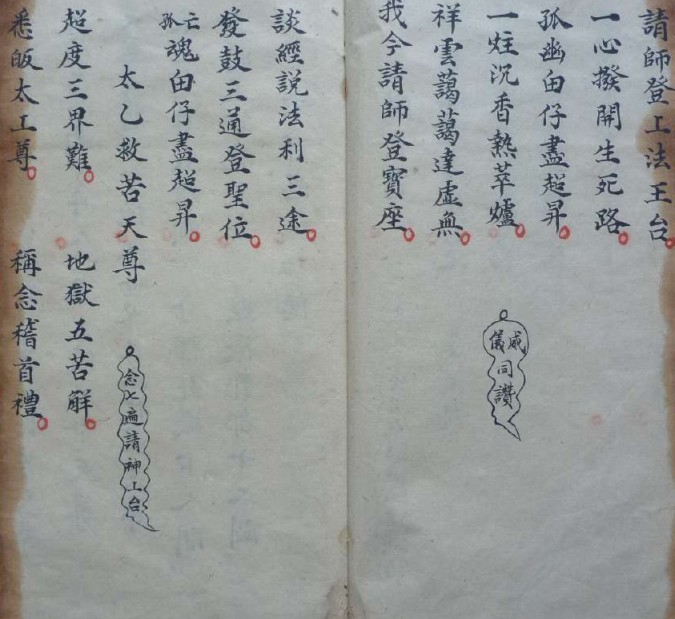 請師登上法王台
一心撥開生死路
孤幽甶仔盡超昇
一炷沉香熱萃爐
威儀同讚
祥雲藹藹達虛無
我今請師登寶座
談經說法利三途
發鼓三通登聖位
亡孤魂甶仔盡超昇
太乙救苦天尊
念七遍請神上台
超度三界難 地獄五苦解
悉皈太上尊 稱念稽首禮